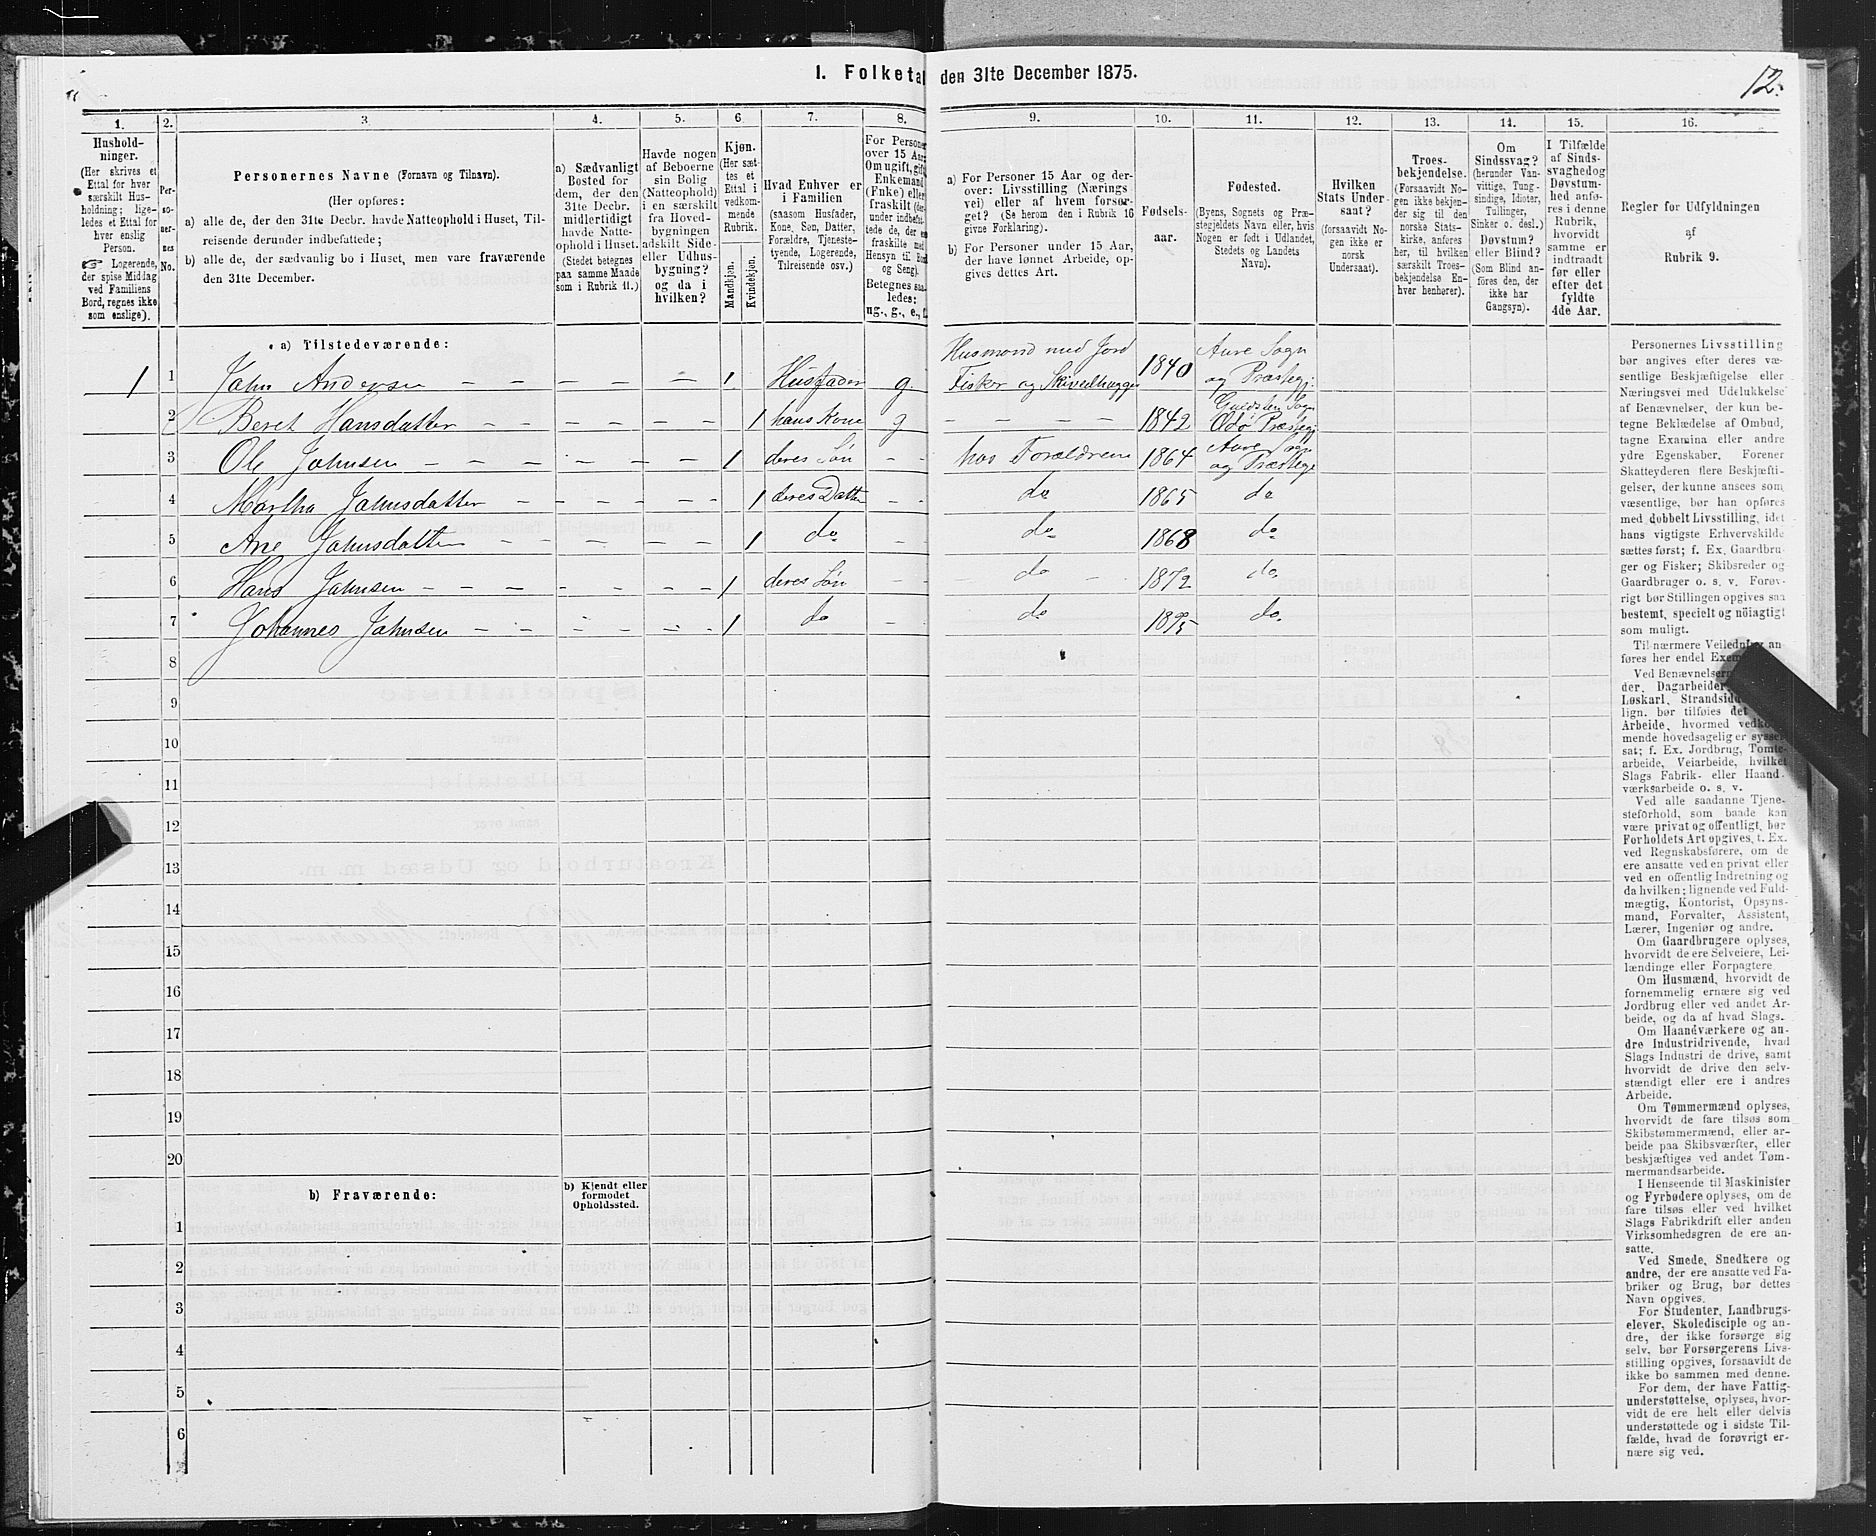 I. Folketal den 31te December 1875.
12.
1.
Hushold-
ninger.
(Her skrives et
Ettal for hver
særskilt Hus-
holdning; lige-
ledes et Ettal for
hver enslig
Person.
☞ Logerende,
der spise Middag
ved Familiens
Bord, regnes ikke
som enslige).
2.
Per-
so-
ner-
nes
No.
3.
Personernes Navne (Fornavn og Tilnavn).
(Her opføres:
a) alle de, der den 31te Decbr. havde Natteophold i Huset, Til-
reisende derunder indbefattede;
b) alle de, der sædvanlig bo i Huset, men vare fraværende
den 31te December.
4.
a) Sædvanligt
Bosted for
dem, der den
31te Decbr.
midlertidigt
havde Natte-
ophold i Huset.
(Stedet betegnes
paa samme Maade
som i Rubrik 11.)
5.
Havde nogen
af Beboerne
sin Bolig
(Natteophold)
i en særskilt
fra Hoved-
bygningen
adskilt Side-
eller Udhus-
bygning?
og da i
hvilken?
6.
Kjøn.
(Her sæt-
tes et
Ettal i
vedkom-
mende
Rubrik.
Mandkjøn.
Kvindekjøn.
7.
Hvad Enhver er
i Familien
(saasom Husfader,
Kone, Søn, Datter,
Forældre, Tjeneste-
tyende, Logerende,
Tilreisende osv.)
8.
For Personer
over 15 Aar:
Om ugift, gift,
Enkemand
(Enke) eller
fraskilt (der-
under indbefat-
tede de, der ere
fraskilte med
Hensyn til Bord
og Seng).
Betegnes saa-
ledes:
ug., g., e., f.
9.
a) For Personer 15 Aar og der-
over: Livsstilling (Nærings-
vei) eller af hvem forsør-
get? (Se herom den i Rubrik 16
givne Forklaring).
b) For Personer under 15 Aar,
der have lønnet Arbeide, op-
gives dettes Art.
10.
Fødsels-
aar.
11.
Fødested.
(Byens, Sognets og Præ-
stegjeldets Navn eller, hvis
Nogen er født i Udlandet,
Stedets og Landets
Navn).
12.
Hvilken
Stats Under-
saat?
(forsaavidt No-
gen ikke er
norsk
Undersaat).
13.
Troes-
bekjendelse.
(Forsaavidt No-
gen ikke bekjen-
der sig til den
norske Stats-
kirke, anføres
her, til hvilken
særskilt Troes-
bekjendelse En-
hver henhører).
14.
Om
Sindssvag?
(herunder Van-
vittige, Tung-
sindige, Idioter,
Tullinger,
Sinker o. desl.)
Døvstum?
eller Blind?
(Som Blind an-
føres den, der
ikke har
Gangsyn).
15.
I Tilfælde
af Sinds-
svaghed og
Døvstum-
hed anfø-
res i denne
Rubrik,
hvorvidt
samme er
indtraadt
før eller
efter det
fyldte
4de Aar.
16.
Regler for Udfyldningen
af
Rubrik 9.
a) Tilstedeværende:
1 1 John Andersen – – – – – 1 Husfader g. Husmand med Jord Fisker og Skivedhugger 1840 Aure Sogn og Præstegj.
2 Beret Hansdatter – – – – – 1 hans Kone g – – – – 1842 Sogn Edø Præstegj
3 Ole Johnsen – – – – – 1 deres Søn – – hos Forældrene 1864 Aure Sogn og Præstegj
4 Martha Johnsdatter – – – – – 1 deres Datter – – do 1865 do
5 Ane Johnsdatter – – – – – 1 do – do 1868 do
6 Hans Johnsen – – – – – 1 deres Søn – – – do – 1872 do
7 Johannes Johnsen – – – – – 1 do – do 1875 do
8
9
10
11
12
13
14
15
16
17
18
19
20
b) Fraværende:
b) Kjendt eller
formodet
Opholdssted.
1
2
3
4
5
6
Personernes Livsstilling
bør angives efter deres væ-
sentlige Beskjæftigelse eller
Næringsvei med Udelukkelse
af Benævnelser, der kun be-
tegne Beklædelse af Ombud,
tagne Examina eller andre
ydre Egenskaber. Forener
Skatteyderen flere Beskjæfti-
gelser, der kunne ansees som
væsentlige, bør han opføres
med dobbelt Livsstilling, idet
hans vigtigste Erhvervskilde
sættes først; f. Ex. Gaardbru-
ger og Fisker; Skibsreder og
Gaardbruger o. s. v. Forøv-
rigt bør Stillingen opgives saa
bestemt, specielt og nöiagtigt
som muligt.
Til nærmere Veiledning an-
føres her endel
Ved Benævnelser
der, Dagarbeider
Løskarl, Strandsid
lign. bør tilføies det
Arbeide, hvormed vedkom-
mende hovedsagelig er syssel-
sat; f. Ex. Jordbrug, Tomte-
arbeide, Veiarbeide, hvilket
Slags Fabrik- eller Haand-
værksarbeide o. s. v.
Ved alle saadanne Tjene-
steforhold, som baade kan
være privat og offentligt, bør
Forholdets Art opgives, t. Ex.
ved Regnskabsførere, om de
ere ansatte ved en privat eller
ved en offentlig Indretning og
da hvilken; lignende ved Fuld-
mægtig, Kontorist, Opsyns-
mand, Forvalter, Assistent,
Lærer, Ingeniør og andre.
Om Gaardbrugere oplyses,
hvorvidt de ere Selveiere, Lei-
lændinge eller Forpagtere.
Om Husmænd, hvorvidt de
fornemmelig ernære sig ved
Jordbrug eller ved andet Ar-
beide, og da af hvad Slags.
Om Haandværkere og an-
dre Industridrivende, hvad
Slags Industri de drive, samt
hvorvidt de drive den selv-
stændigt eller ere i andres
Arbeide.
Om Tømmermænd oplyses,
hvorvidt de fare tilsøs som
Skibstømmermænd, eller ar-
beide paa Skibsværfter, eller
beskjæftiges ved andet Tøm-
mermandsarbeide.
I Henseende til Maskinister
og Fyrbødere oplyses, om de
fare tilsøs eller ved hvilket
Slags Fabrikdrift eller anden
Virksomhedsgren de ere an-
satte.
Ved Smede, Snedkere og
andre, der ere ansatte ved Fa-
briker og Brug, bør dettes
Navn opgives.
For Studenter, Landbrugs-
elever, Skoledisciple og an-
dre, der ikke forsørge sig
selv, bør Forsørgerens Livs-
stilling opgives, forsaavidt de
ikke bo sammen med denne.
For dem, der have Fattig-
understøttelse, oplyses, hvor-
vidt de ere helt eller delvis
understøttede og i sidste Til-
fælde, hvad de forøvrigt er-
nære sig ved.